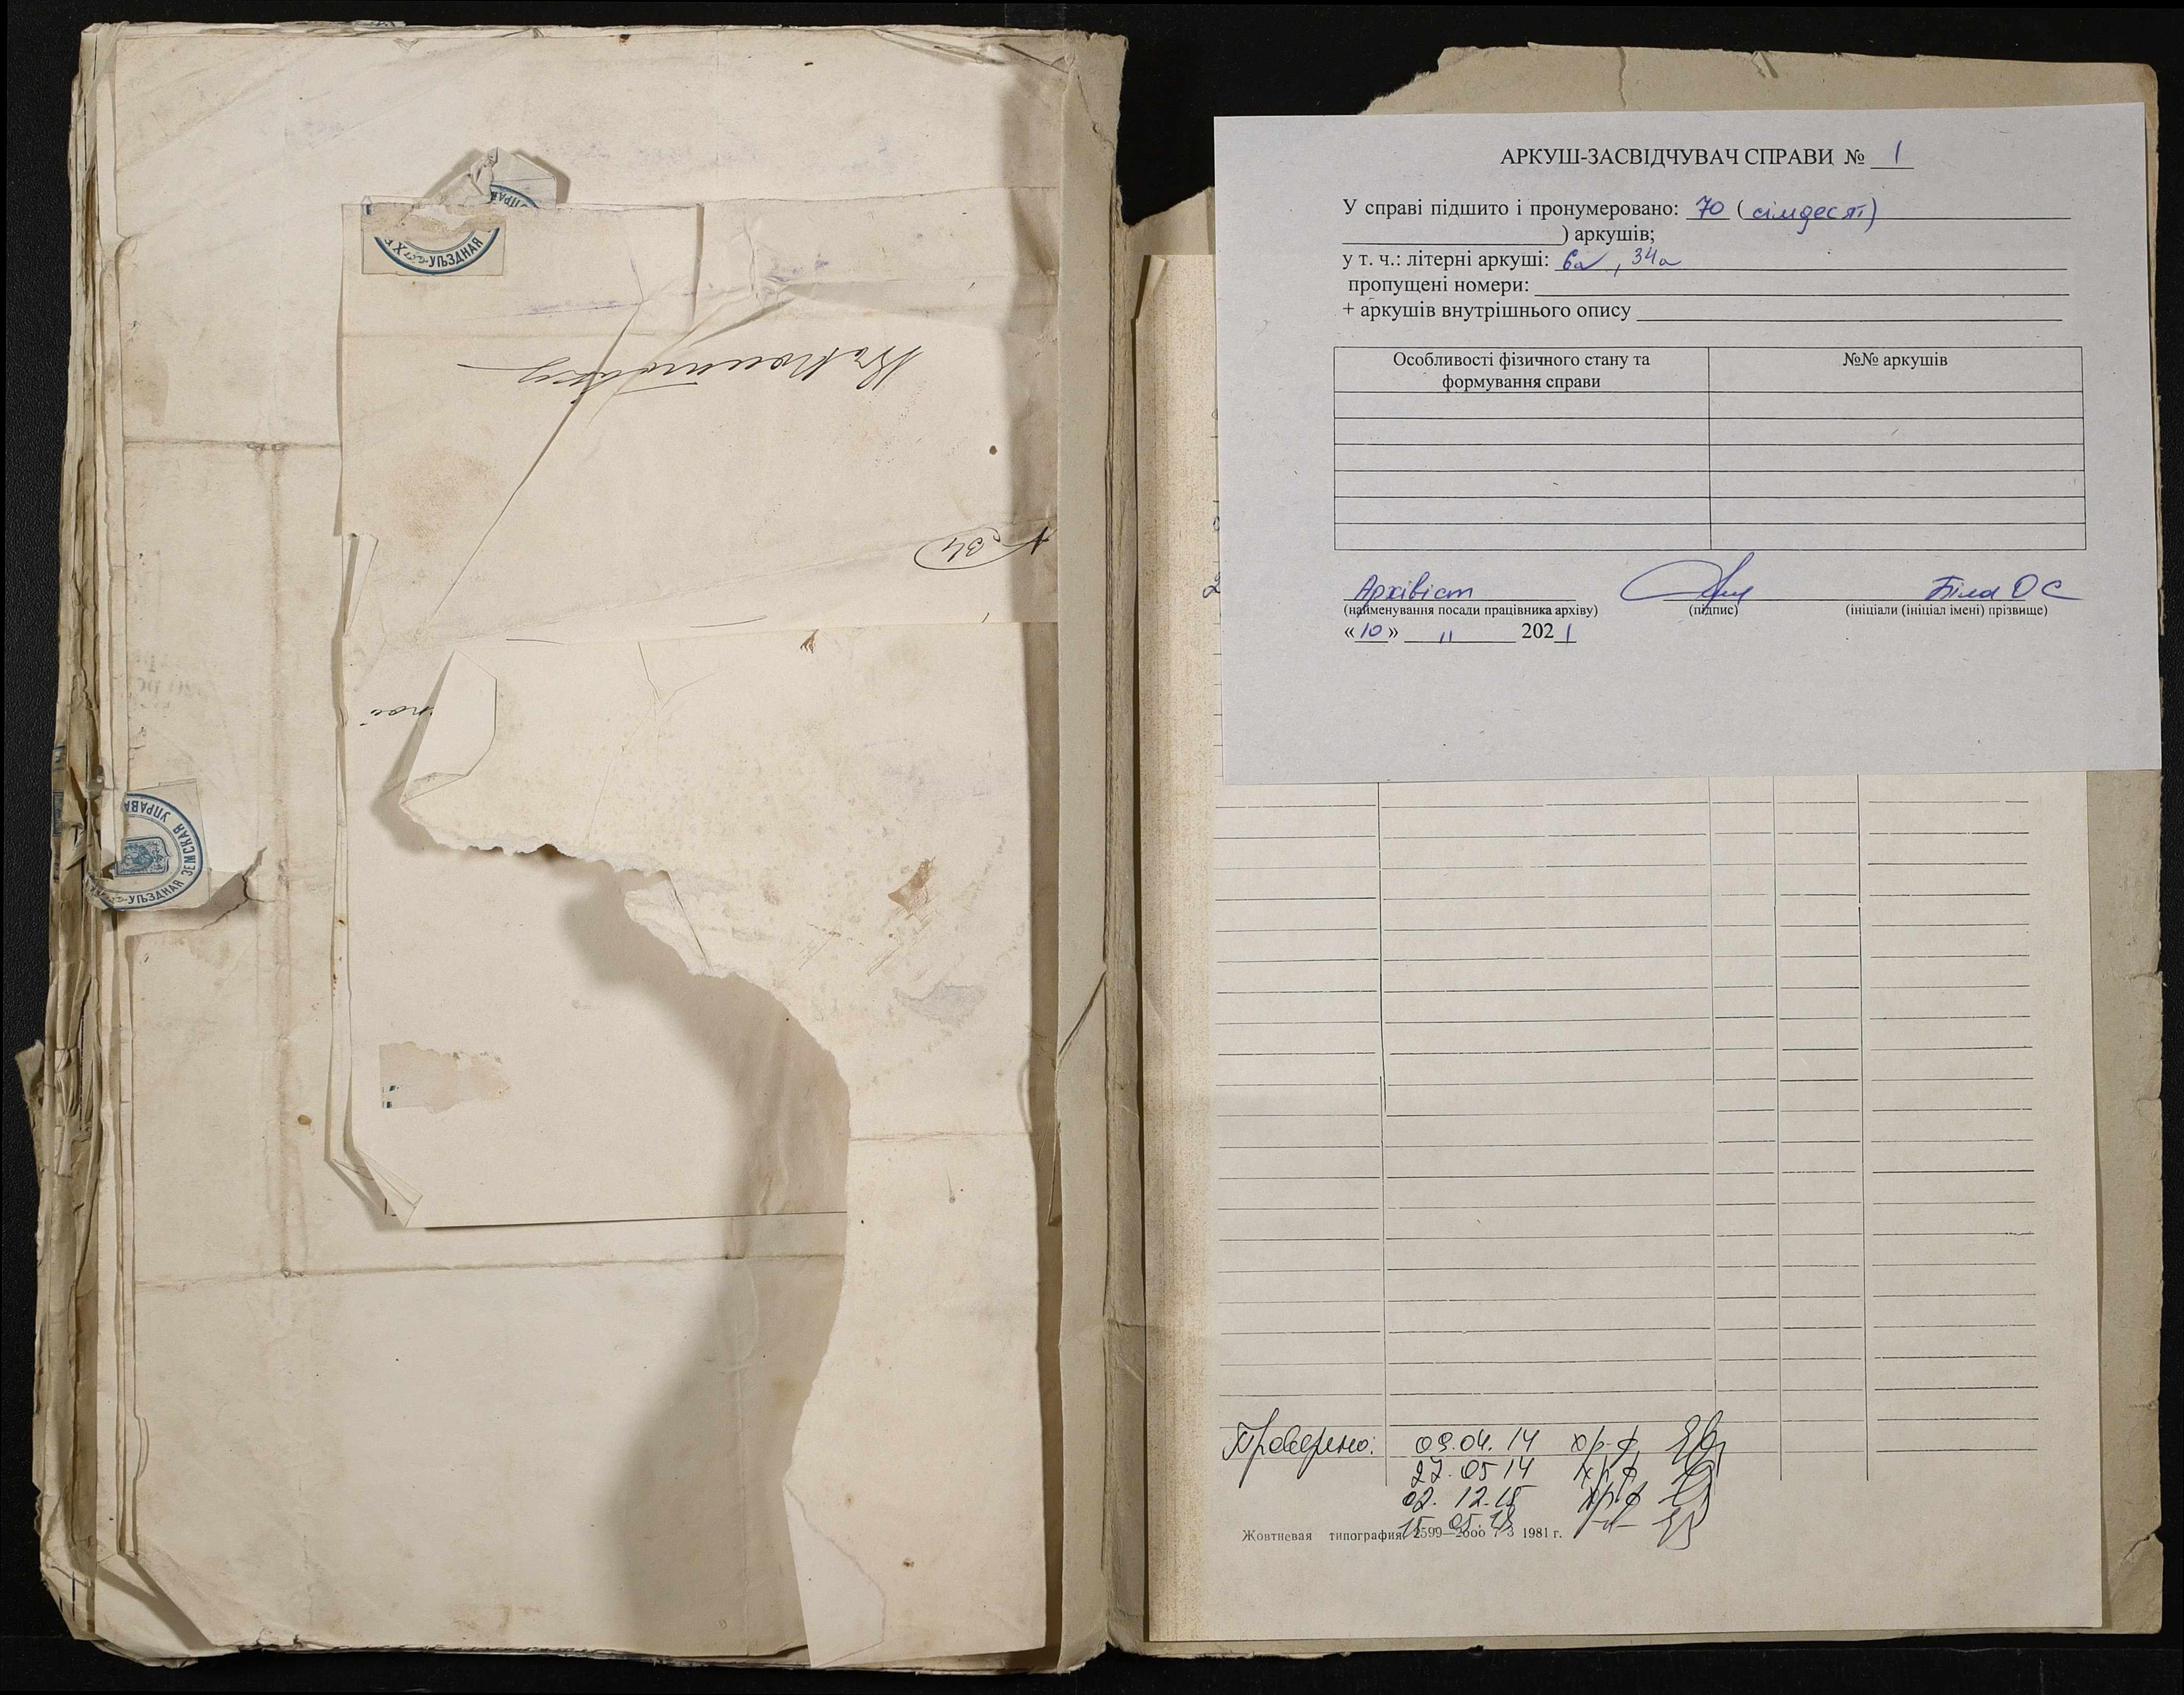 УПРАВ
УѢЗДНАЯ
№ 34
УѢЗДНАЯ ЗЕМСКАЯ УПРАВА
АРКУШ-ЗАСВІДЧУВАЧ СПРАВИ № 1
У справі підшито і пронумеровано: 70 (сімдесят)
) аркушів;
у т. ч.: літерні аркуші: 6а, 34а
пропущені номери:
+ аркушів внутрішнього опису
Особливості фізичного стану та формування справи
№№ аркушів
Архівіст Біла О С
(найменування посади працівника архіву) (підпис) (ініціали (ініціал імені) прізвище)
«10» 11 2021
Проверено: 09.04.14 хр-ф
27.05 14 хр ф
02. 12.15 хр ф
15 05.18 -"-
Жовтневая типография 2599—2000 7-3 1981 г.